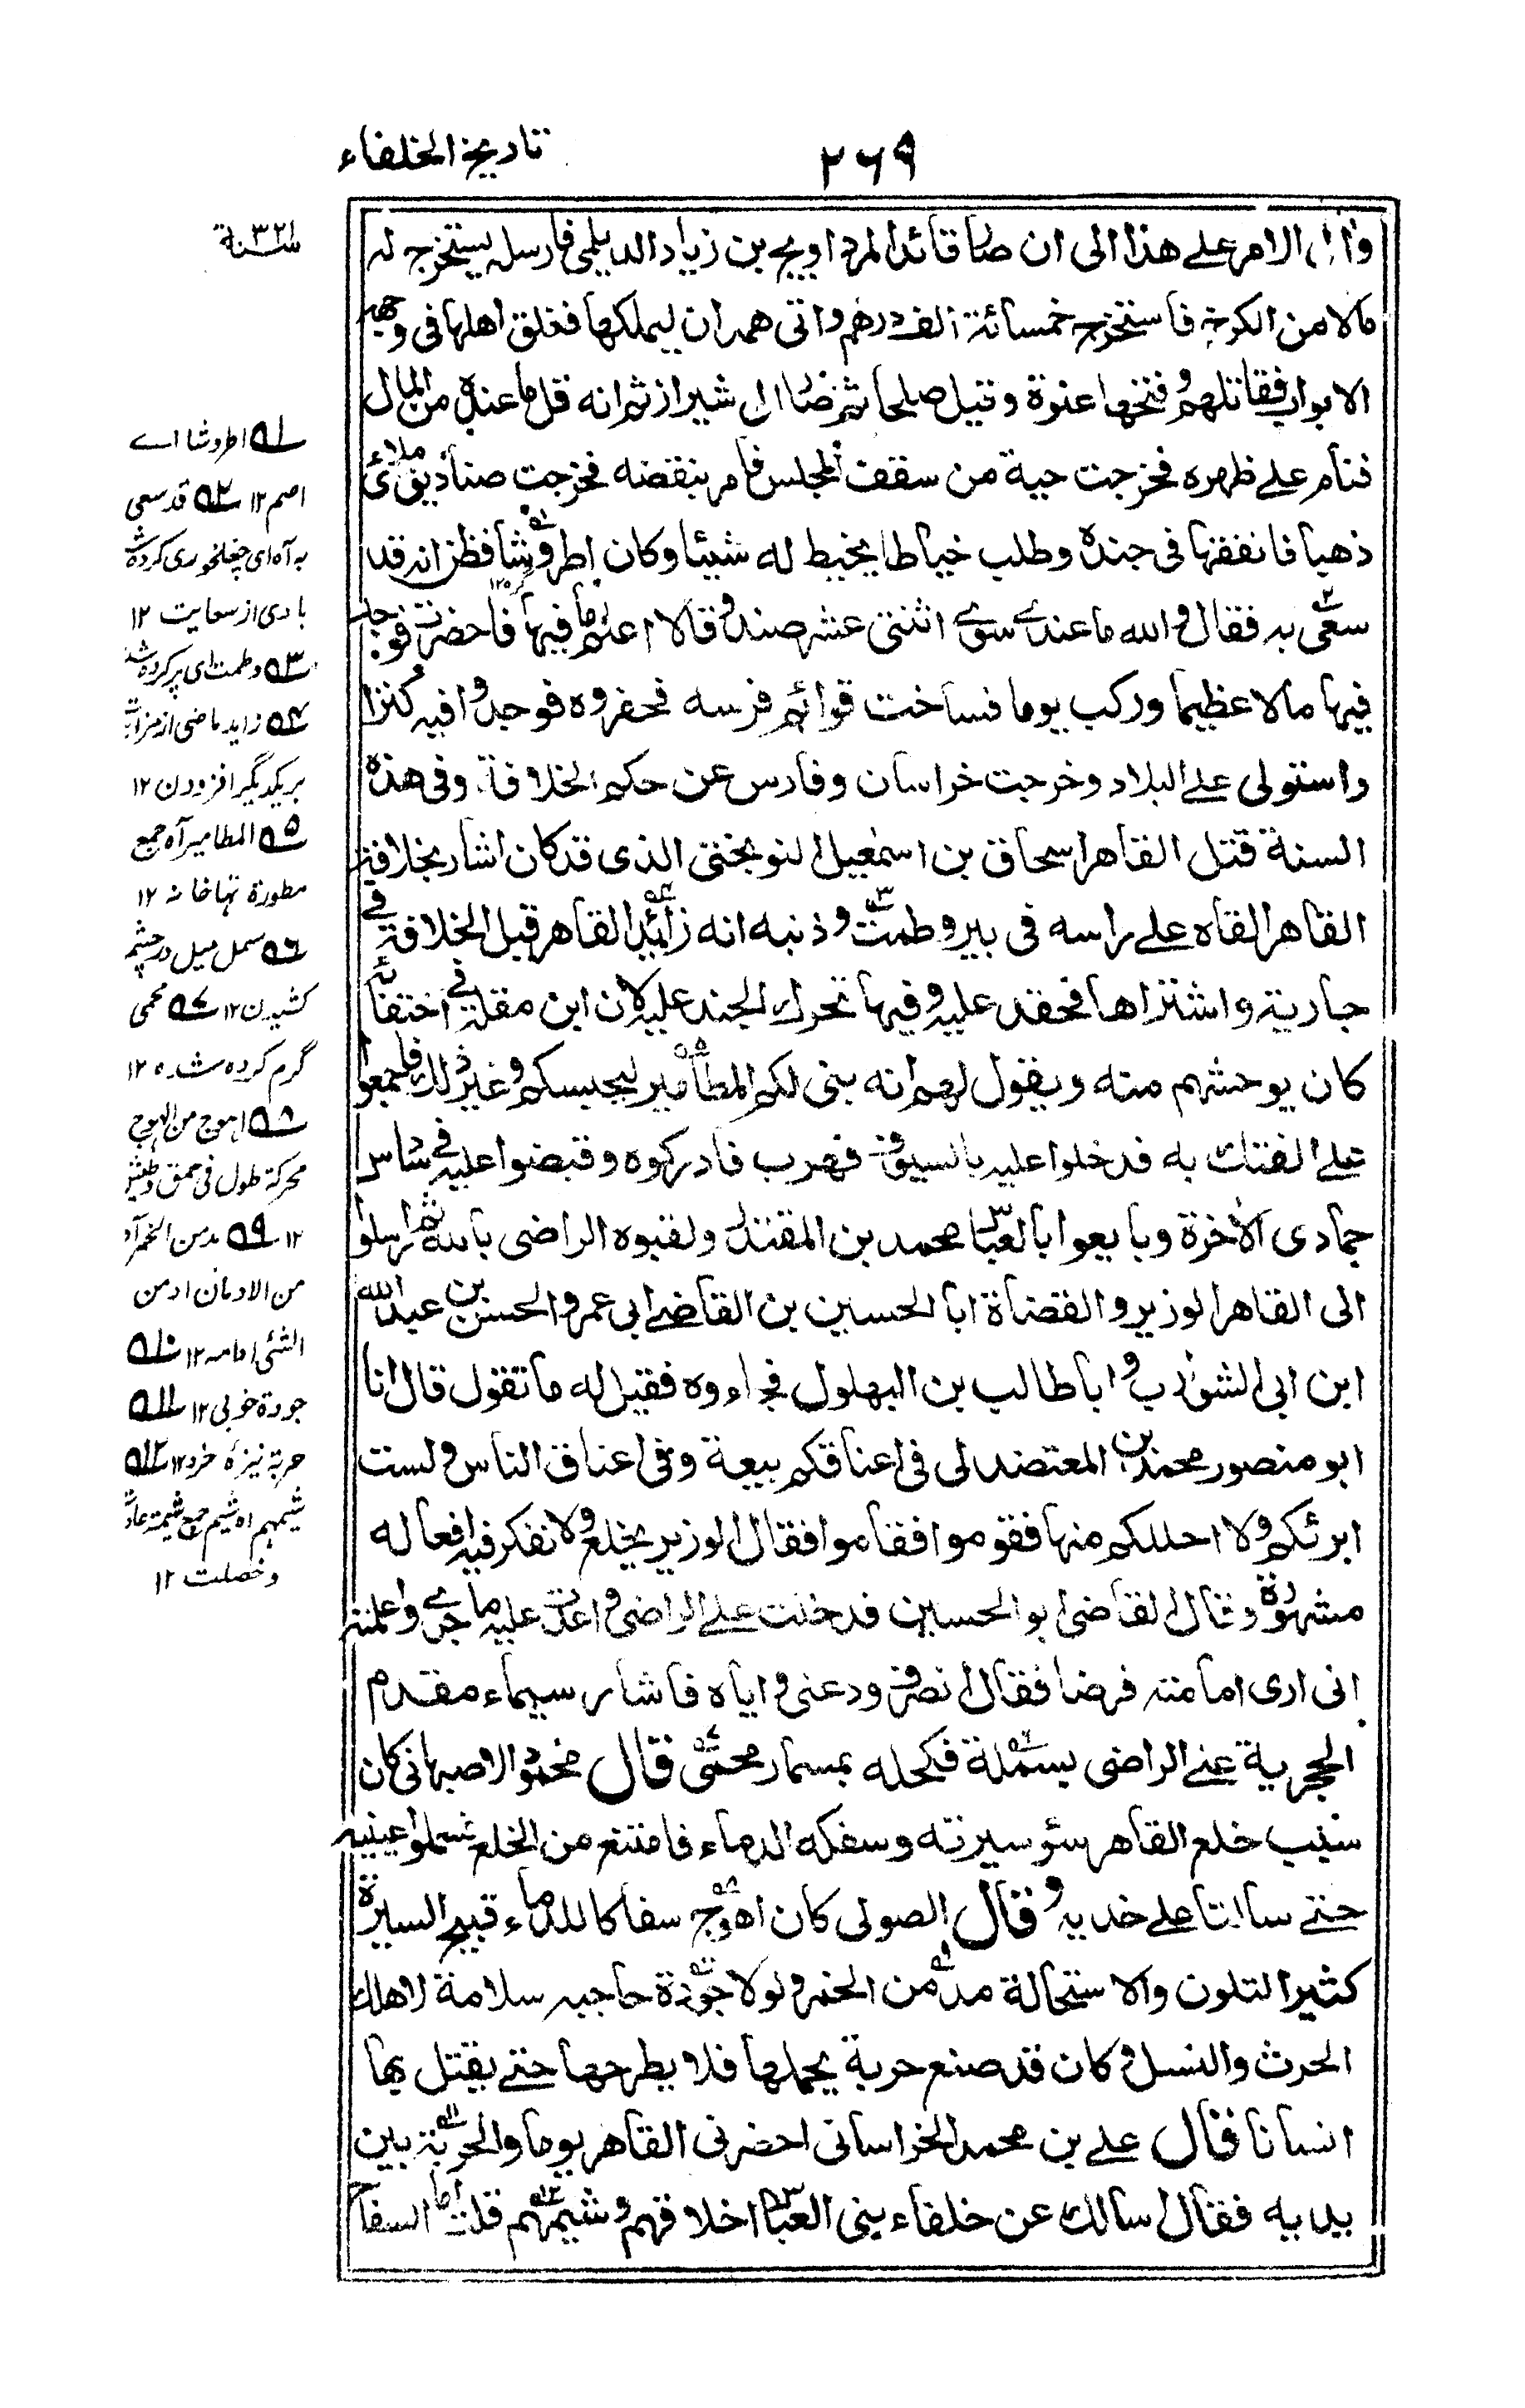 تاريخ الخلفاء
٢٦٩
الامر على هذا الى ان صار قائدا لمرداويج بن زياد الديلمى فارسله يستخرج له
مالا من الكرخ فاستخرج خمسمائة الف درهم واتى همدان ليملكها فغلق اهلها فى وجهه
الابواب فقاتلهم و فتحها عنوة وقيل صلحا ثم صار الى شيراز ثم انه قل ما عنده من المال
فنام على ظهره فخرجت حية من سقف المجلس فامر بنقضه فخرجت صناديق ملاى
ذهبا فانفقها فى جنده وطلب خياطا يخيط له شيئا وكان اطروشا فظن انه قد
سعى به فقال والله ما عندى سوى اثنتى عشر صندوقا لا اعلم ما فيها فاحضرت فوجد
فيها مالا عظيما وركب يوما فساخت قوائم فرسه فحفروه فوجدوا فيه كنزا
واستولى على البلاد وخرجت خراسان وفارس عن حكم الخلافة وفى هذه
السنة قتل القاهر اسحاق بن اسمعيل النوبختى الذى قد كان اشار بخلافة
القاهر القاه على راسه فى بير وطمت وذنبه انه زايد القاهر قبل الخلافة فى
جارية واشتراها فحقد عليه وفيها تحرك الجند عليه لان ابن مقلة فى اختفائه
كان يوحشهم منه ويقول لهم انه بنى لكم المطامير ليحبسكم وغير ذلك فاجمعوا
على الفتك به فدخلوا عليه بالسيوف فهرب فادركوه وقبضوا عليه فى سادس
جمادى الآخرة وبايعوا ابا العباس محمد بن المقتدر ولقبوه الراضى بالله ثم ارسلوا
الى القاهر الوزير والقضاة ابا الحسين بن القاضى ابى عمر والحسن بن عبد الله
ابن ابى الشوارب وابا طالب بن البهلول فجاءوه فقيل له ما تقول قال انا
ابو منصور محمد بن المعتضد لى فى اعناقكم بيعة وفى اعناق الناس ولست
ابرئكم ولا احللكم منها فقوموا فقاموا فقال الوزير يخلع ولا نفكر فيه افعاله
مشهورة وقال القاضى ابو الحسين فدخلت على الراضى واعدت عليه ما جرى واعلمته
انى ارى امامته فرضا فقال انصرف ودعنى واياه فاشار سيماء مقدم
الحجرية على الراضى بسمله فكحله بمسمار محمى قال محمود الاصبهانى كان
سبب خلع القاهر سؤ سيرته وسفكه الدماء فامتنع من الخلع فسملوا عينيه
حتى سالتا على خديه وقال الصولى كان اهوج سفاكا للدماء قبيح السيرة
كثير التلون والاستحالة مدمن الخمر ولولا جودة حاجبه سلامة لاهلك
الحرث والنسل وكان قد صنع حربة يحملها فلا يطرحها حتى يقتل بها
انسانا قال على بن محمد الخراسانى احضرنى القاهر يوما والحربة بين
يديه فقال اسالك عن خلفاء بنى العباس اخلاقهم وشيمهم قلت اما السفاح
سنة ٣٢١
١ اطروشا اے
اصم ١٢ ٢ قد سعى
به آه اى چغلخورى كرده شد
بادى از سعايت ١٢
٣ وطمت اى پر كرده شد
٤ زايد ماضى از مزايدة
بر يكديگر افزودن ١٢
٥ المطامير آه جمع
مطمورة نهانخانه ١٢
٦ سمل ميل در چشم
كشيدن ١٢ ٧ محمى
گرم كرده شده ١٢
٨ اهوج من الهوج
محركة طول فى حمق وطيش
١٢ ٩ مدمن الخمر آه
من الادمان ادمن
الشئى ادامه ١٢ ١٠
جودة خوبى ١٢ ١١
حربة نيزهٔ خرد ١٢ ١٢
شيمهم اه شيم جمع شيمة عادت
وخصلت ١٢